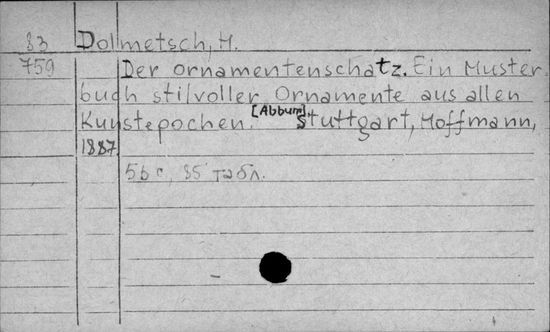 83 Dolmetsch, H.
759 Der ornamentenschatz. Ein Muster
buch stilvoller Ornamente aus allen
Kunstepochen. [Abbum] Stuttgart, Hoffmann,
1887.
56 с, 85 табл.